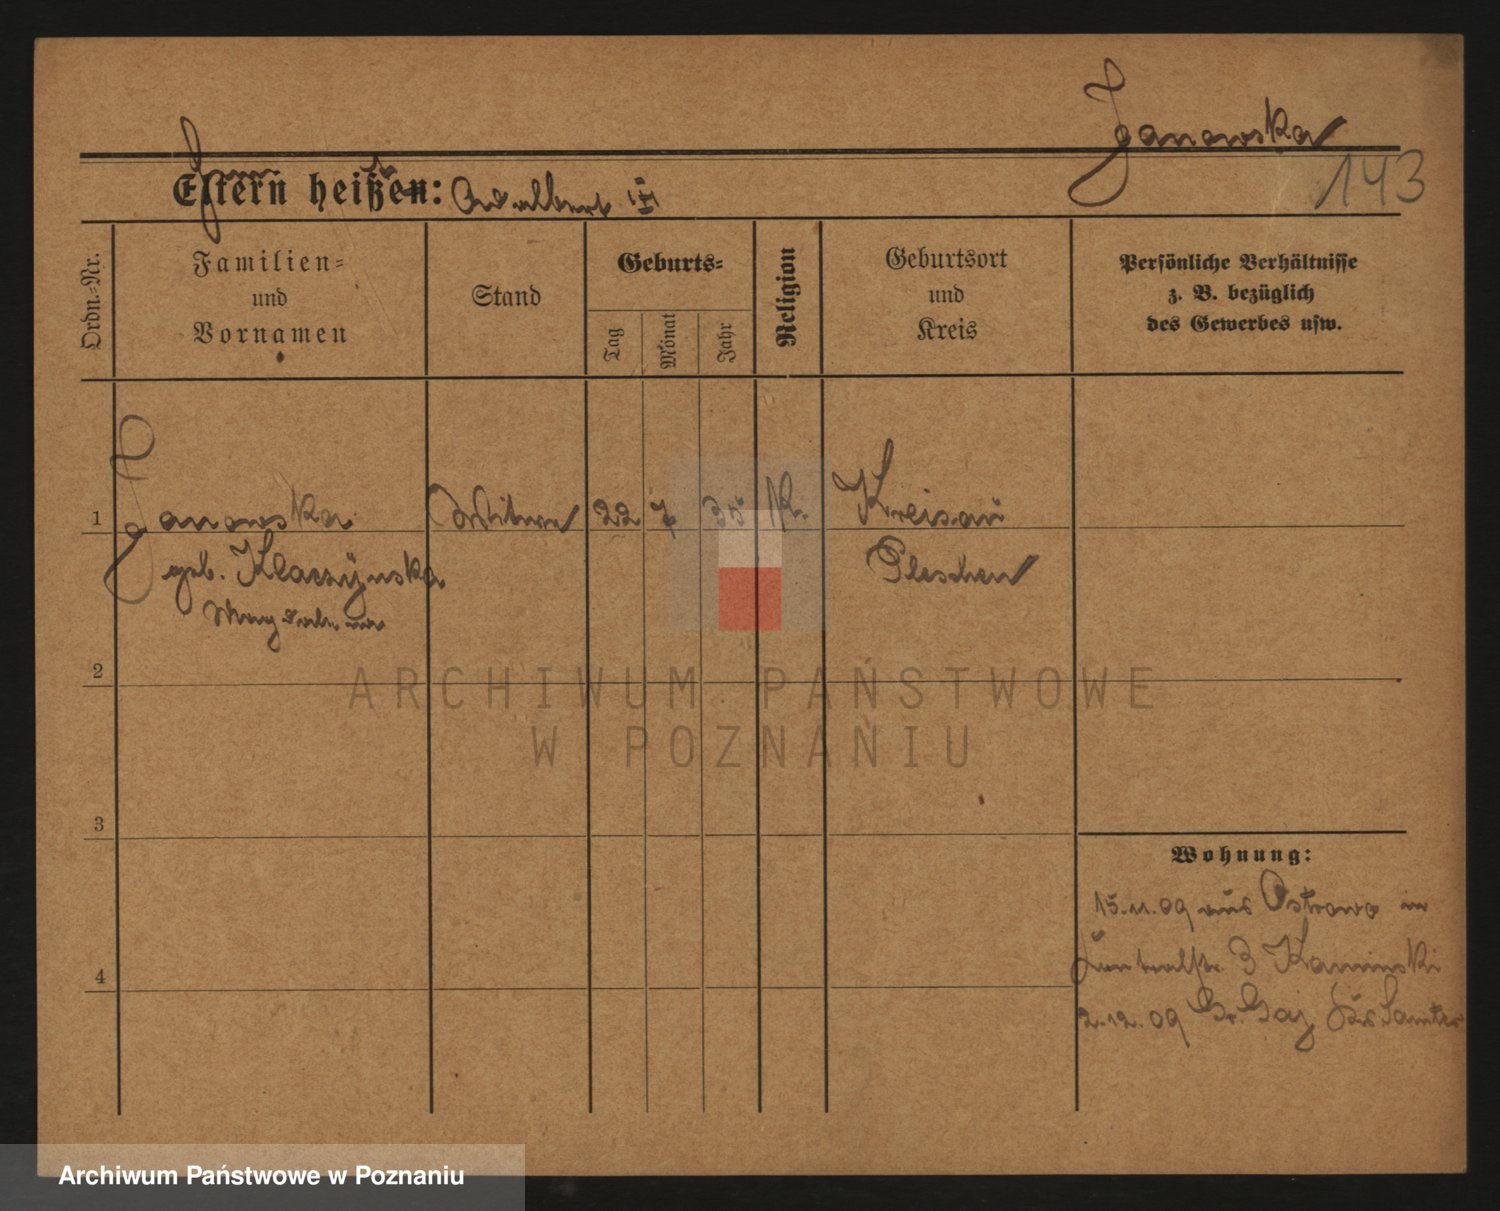 Janowska
143
Eltern heißen: Adalbert
Ordn.-Nr.
Familien-
und
Vornamen
Stand
Geburts-
Tag
Monat
Jahr
Religion
Geburtsort
und
Kreis
Persönliche Verhältnisse
z. B. bezüglich
des Gewerbes usw.
1
Janowska Witwe 22 7 35 K. Kreisau
geb. Klaczynska Pleschen
Magdalena
2
ARCHIWUM PAŃSTWOWE
W POZNANIU
3
Wohnung:
15.11.09 aus Ostrowo in
3 Kaminski
4
2.12.09 Gr. Gaj Krs Samter
Archiwum Państwowe w Poznaniu